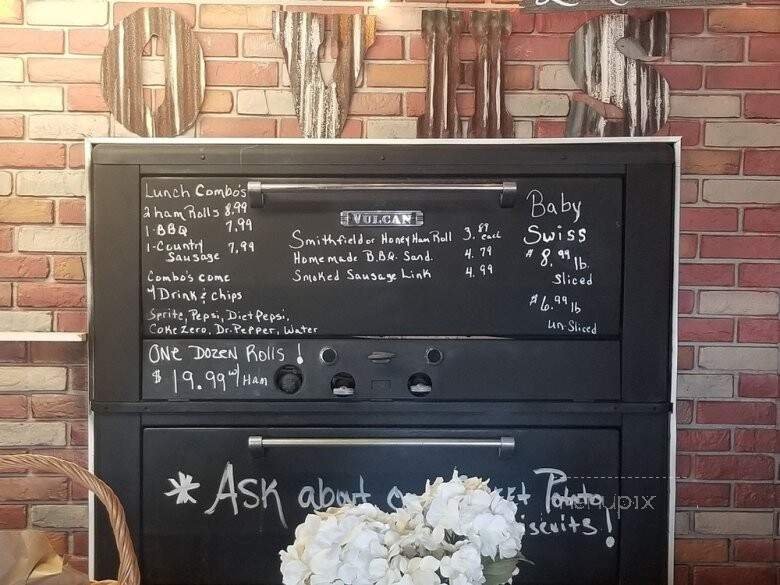 OVENS
Lunch Combo's
2 ham Rolls 8.99
1-BBQ 7.99
1-Country Sausage 7.99
Combo's come
w/ Drink & chips
Sprite, Pepsi, Diet Pepsi,
Coke Zero, Dr. Pepper, Water
VULCAN
Smithfield or Honey Ham Roll 3.89 each
Homemade B.B.Q. Sand. 4.79
Smoked Sausage Link 4.99
Baby
Swiss
$8.99 lb.
Sliced
$6.99 lb
un-Sliced
One Dozen Rolls!
$19.99 w/ Ham
*Ask about Potato
menupix